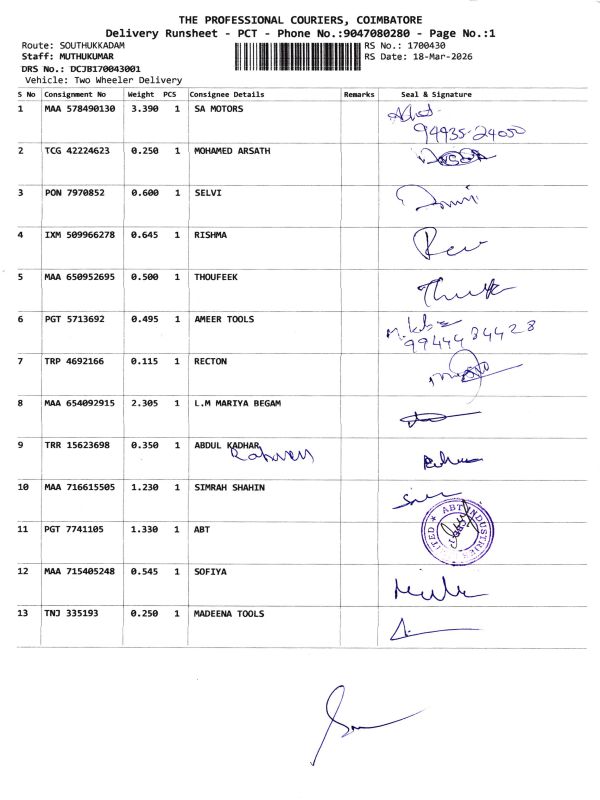 THE PROFESSIONAL COURIERS, COIMBATORE
Delivery Runsheet - PCT - Phone No.:9047080280 - Page No.:1
Route: SOUTHUKKADAM RS No.: 1700430
Staff: MUTHUKUMAR RS Date: 18-Mar-2026
DRS No.: DCJB170043001
Vehicle: Two Wheeler Delivery
S No Consignment No Weight PCS Consignee Details Remarks Seal & Signature
1 MAA 578490130 3.390 1 SA MOTORS
94935-24050
2 TCG 42224623 0.250 1 MOHAMED ARSATH
3 PON 7970852 0.600 1 SELVI
4 IXM 509966278 0.645 1 RISHMA
5 MAA 650952695 0.500 1 THOUFEEK
6 PGT 5713692 0.495 1 AMEER TOOLS
9944484428
7 TRP 4692166 0.115 1 RECTON
8 MAA 654092915 2.305 1 L.M MARIYA BEGAM
9 TRR 15623698 0.350 1 ABDUL KADHAR
10 MAA 716615505 1.230 1 SIMRAH SHAHIN
11 PGT 7741105 1.330 1 ABT ABT INDUSTRIES
12 MAA 715405248 0.545 1 SOFIYA
13 TNJ 335193 0.250 1 MADEENA TOOLS